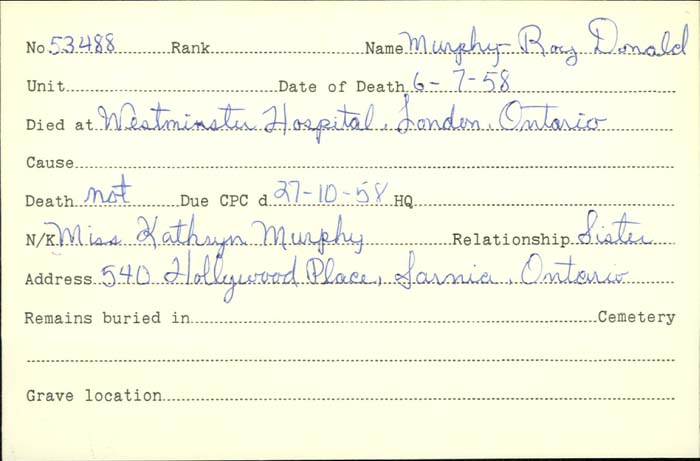 No 53488 Rank Name Murphy- Roy Donald
Unit Date of Death 6-7-58
Died at Westminster Hospital, London, Ontario
Cause
Death not Due CPC d 27-10-58 HQ
N/K Miss Kathryn Murphy Relationship Sister
Address 540 Hollywood Place, Sarnia, Ontario
Remains buried in Cemetery
Grave location